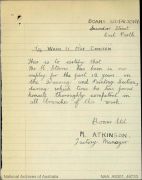 BOANS
Street
East Perth
To Whom It May Concern
This is to certify that
Mr R. Stone has been in our
employ for the past 12 years in
the Drawing and Printing Section,
during which time he has proved
himself thoroughly competent in
all branches of this work.
Boans Ltd
M. ATKINSON.
Factory Manager
National Archives of Australia
NAA: